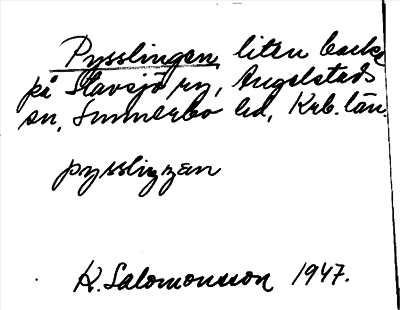 Pysslingen, liten backe
på Slavsjö ry, Angelstads
sn, Sunnerbo hd, Krb. län.
pysslinzen
K. Salomonsson 1947.